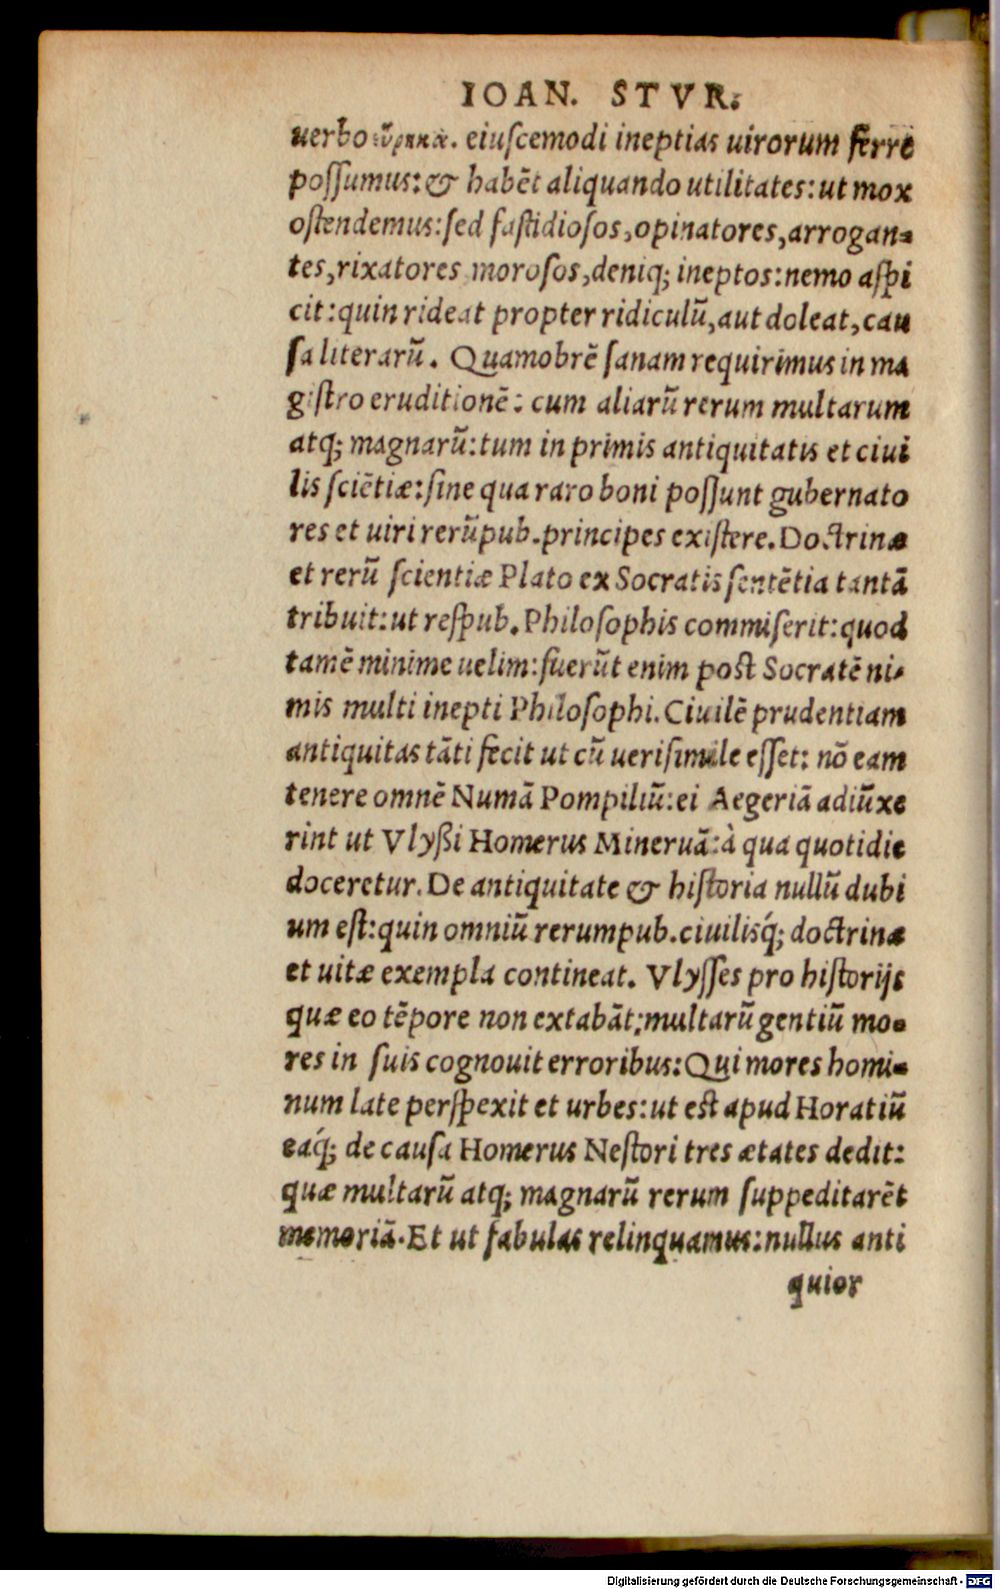 IOAN. STVR.
uerbo εὕρηκα. eiuscemodi ineptias uirorum ferre
possumus: & habẽt aliquando utilitates: ut mox
ostendemus: sed fastidiosos, opinatores, arrogan-
tes, rixatores morosos, deniq; ineptos: nemo aspi
cit: quin rideat propter ridiculũ, aut doleat, cau
sa literarũ. Quamobrẽ sanam requirimus in ma
gistro eruditionẽ: cum aliarũ rerum multarum
atq; magnarũ: tum in primis antiquitatis et ciui
lis sciẽtiæ: sine qua raro boni possunt gubernato
res et uiri rerũpub. principes existere. Doctrinæ
et rerũ scientiæ Plato ex Socratis sentẽtia tantã
tribuit: ut respub. Philosophis commiserit: quod
tamẽ minime uelim: fuerũt enim post Socratẽ ni-
mis multi inepti Philosophi. Ciuilẽ prudentiam
antiquitas tãti fecit ut cũ uerisimile esset: nõ eam
tenere omnẽ Numã Pompiliũ: ei Aegeriã adiũxe
rint ut Vlyßi Homerus Mineruã: à qua quotidie
doceretur. De antiquitate & historia nullũ dubi
um est: quin omniũ rerumpub. ciuilisq́; doctrinæ
et uitæ exempla contineat. Vlysses pro historijs
quæ eo tẽpore non extabãt; multarũ gentiũ mo-
res in suis cognouit erroribus: Qui mores homi-
num late perspexit et urbes: ut est apud Horatiũ
eaq́; de causa Homerus Nestori tres ætates dedit:
quæ multarũ atq; magnarũ rerum suppeditarẽt
memoriã. Et ut fabulas relinquamus: nullus anti
quior
Digitalisierung gefördert durch die Deutsche Forschungsgemeinschaft - DFG